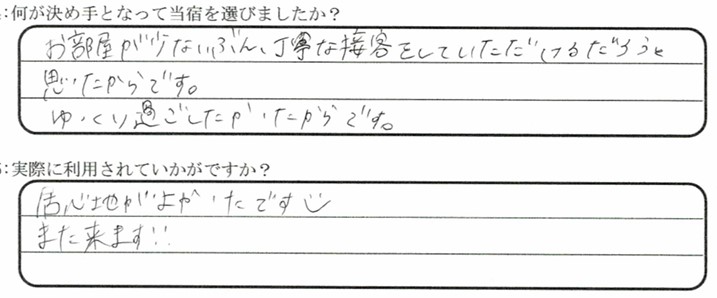 :何が決め手となって当宿を選びましたか？
お部屋が少ないぶん、丁寧な接客をしていただけるだろうと
思ったからです。
ゆっくり過ごしたかったからです。
:実際に利用されていかがですか？
居心地がよかったです
また来ます!!